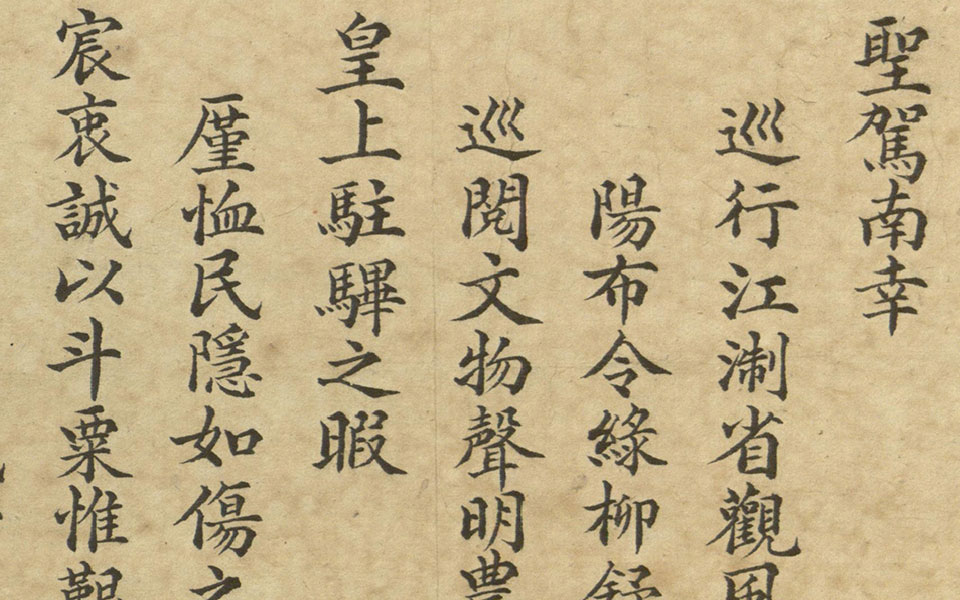 聖駕南幸
巡行江淛省觀風
陽布令緣柳舒
巡閱文物聲明
皇上駐驆之暇
厪恤民隱如傷之
宸衷誠以斗粟惟艱